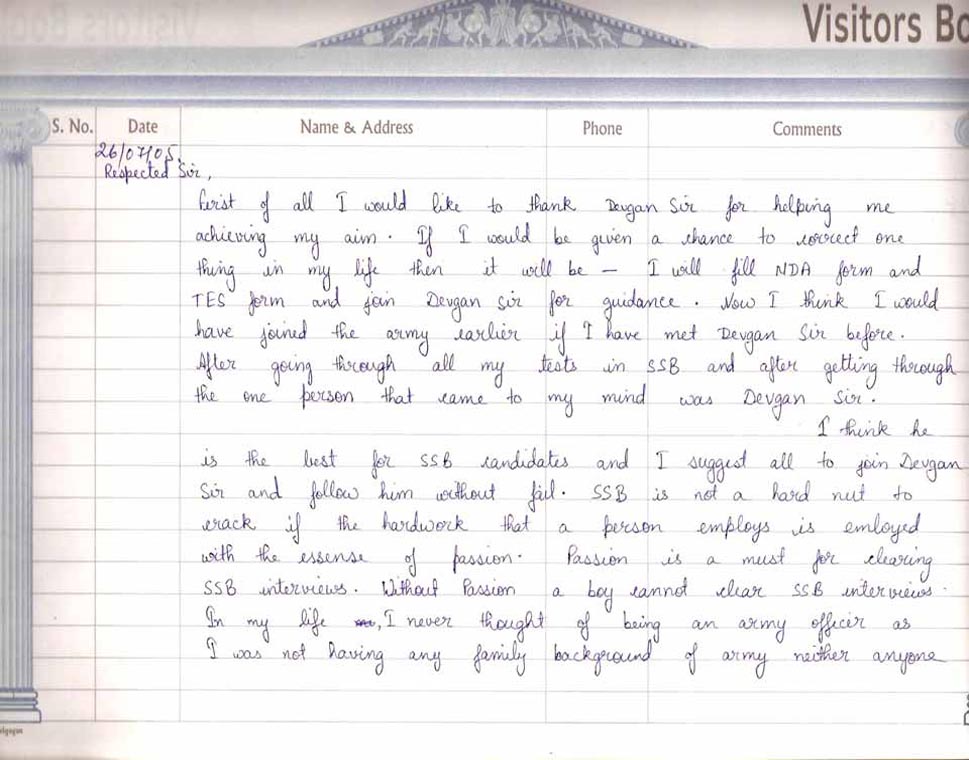 Visitors Bo
S. No. Date Name & Address Phone Comments
26/07/05.
Respected Sir,
Ferist of all I would like to thank Devgan Sir for helping me
achieving my aim. If I would be given a chance to correct one
thing in my life then it will be – I will fill NDA form and
TES form and join Devgan Sir for guidance. Now I think I would
have joined the army earlier if I have met Devgan Sir before.
After going through all my tests in SSB and after getting through
the one person that came to my mind was Devgan Sir.
I think he
is the best for SSB candidates and I suggest all to join Devgan
Sir and follow him without fail. SSB is not a hard nut to
crack if the hardwork that a person employs is emloyed
with the essense of passion. Passion is a must for clearing
SSB interviews. Without Passion a boy cannot clear SSB interviews.
In my life , I never thought of being an army officer as
I was not having any family background of army neither anyone